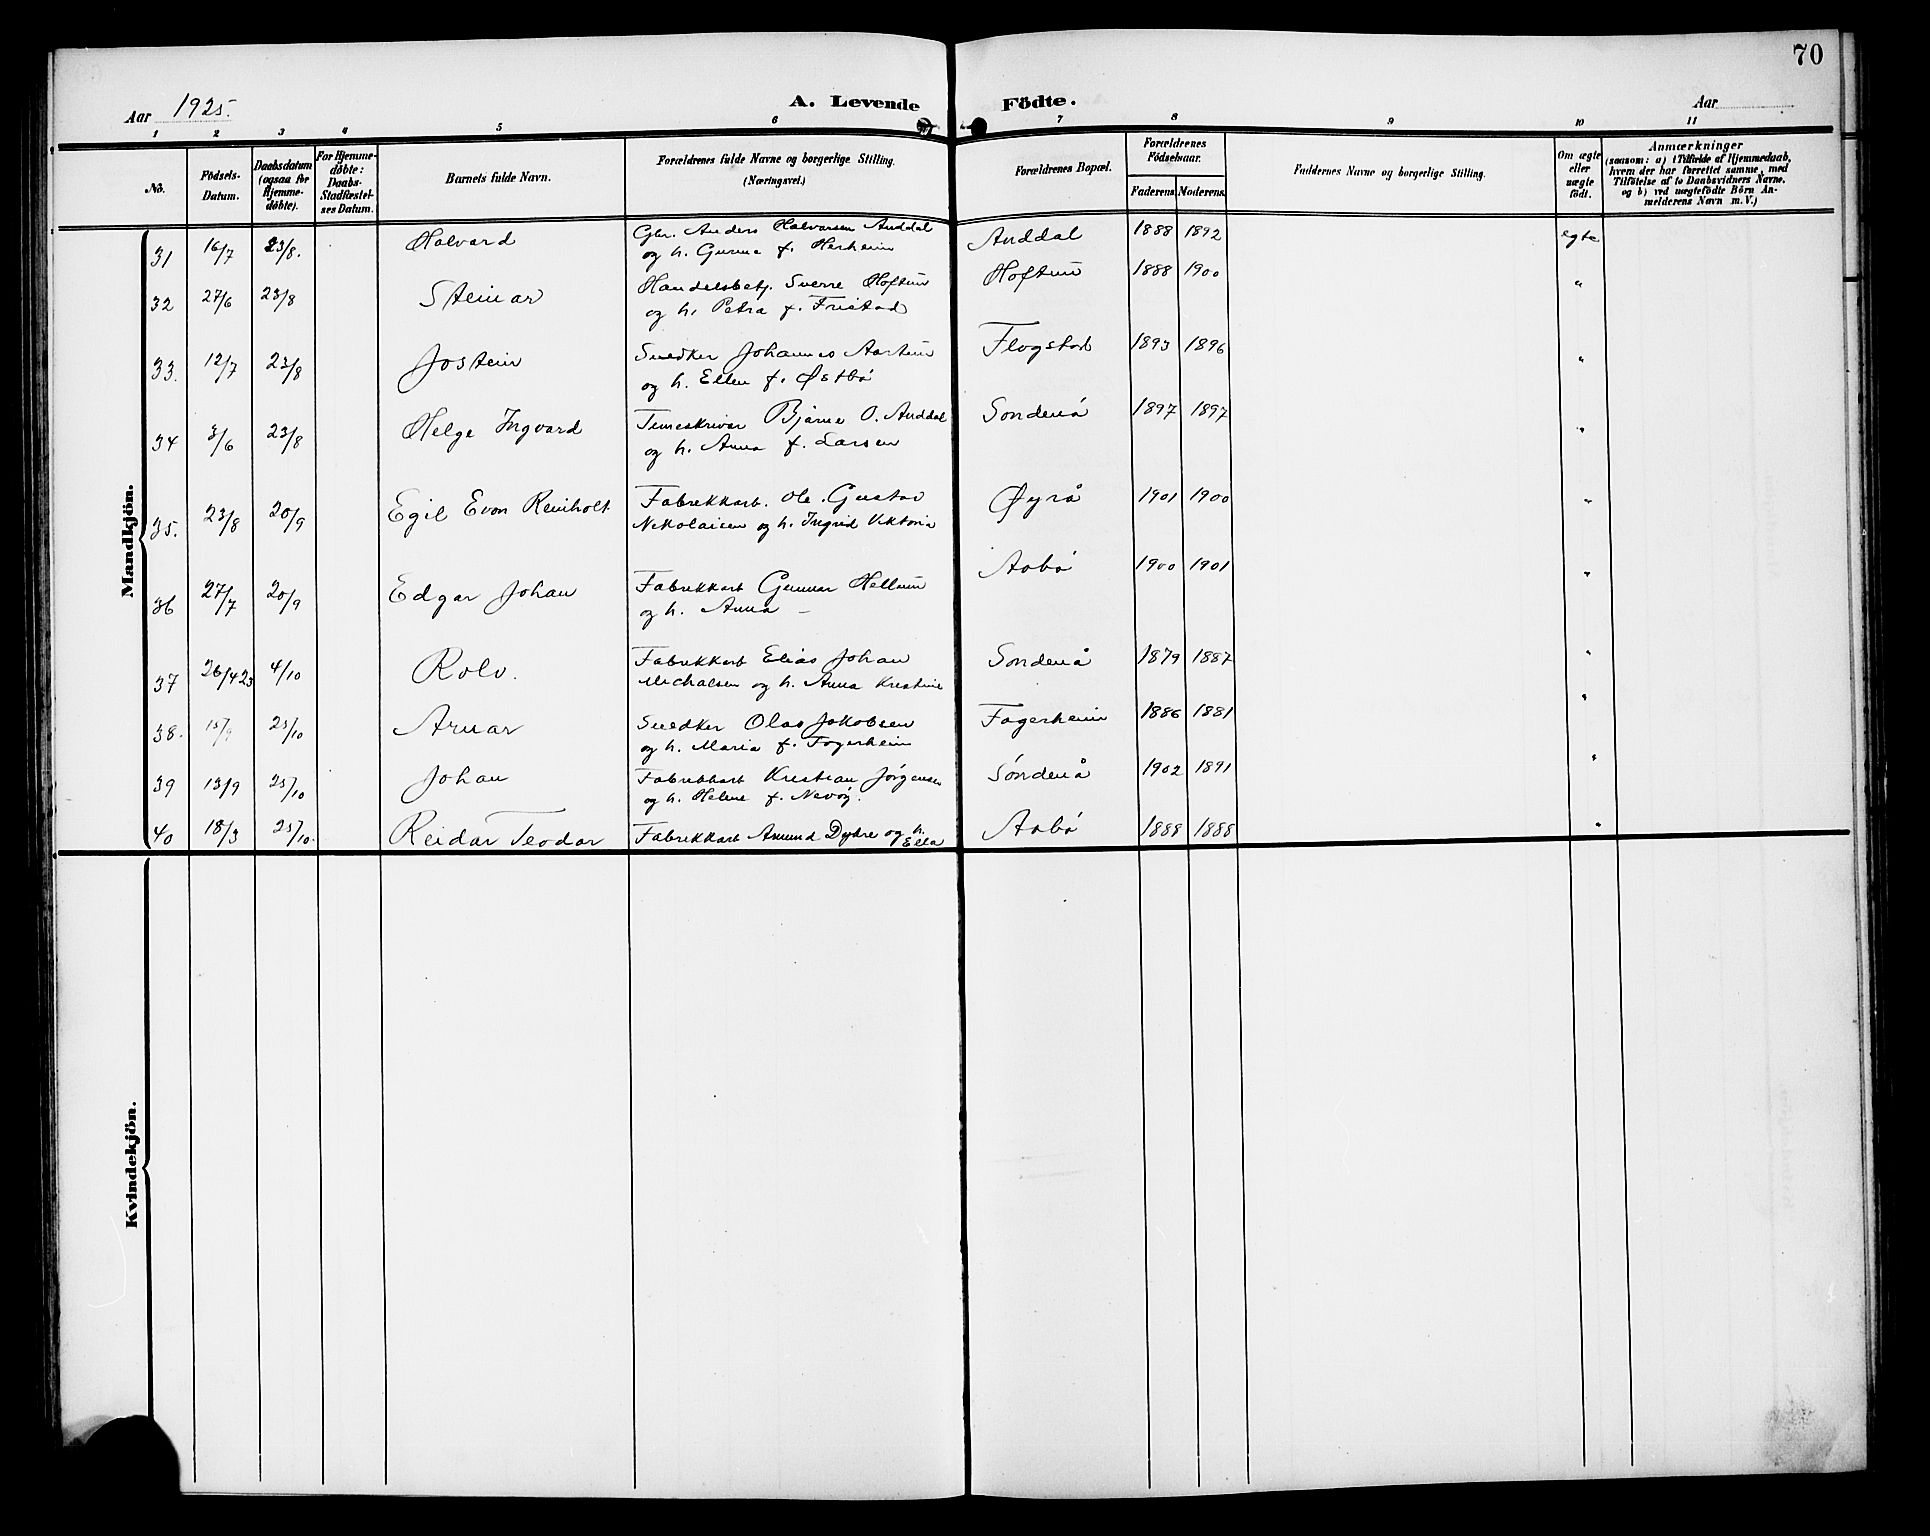 70
Aar 1925.
A. Levende Födte.
Aar
1 2 3 4 5 6 7 8 9 10 11
No.
Födsels-Datum.
Daabsdatum (ogsaa for Hjemme-døbte).
For Hjemme-døbte: Daabs-Stadfæstel-ses Datum.
Barnets fulde Navn.
Forældrenes fulde Navne og borgerlige Stilling.
(Næringsvei.)
Forældrenes Bopæl.
Forældrenes Födselsaar.
Faderens Moderens.
Faddernes Navne og borgerlige Stilling.
Om ægte eller uægte födt.
Anmærkninger
(saasom: a) i Tilfælde af Hjemmedaab,
hvem der har forrettet samme, med
Tilföielse af to Daabsvidners Navne,
og b) ved uægtefödte Börn An-
melderens Navn m. V.)
Mandkjön.
31 16/7 23/8. Halvard Gbr. Anders Halvorsen Auddal Auddal 1888 1892 egte
og h. Gurine f. Herheim
32 27/6 23/8 Steinar Handelsbetj. Sverre Hoftun Hoftun 1888 1900 "
og h. Petra f. Fristad
33. 12/7 23/8 Jostein Snedker Johannes Aartun Flogstad 1893 1896 "
og h. Ellen f. Østbö
34 3/6 23/8 Helge Ingvard Timeskriver Bjarne O. Auddal Sondenå 1897 1897 "
og h. Anna f. Larsen
35. 23/8 20/9 Egil Evon Reinholt Fabrikkarb. Ole Gustav Øyrå 1901 1900 "
Nikolaisen og h. Ingrid Viktoria
36 27/7 20/9 Edgar Johan Fabrikkarb Gunnar Hellum Aabö 1900 1901 "
og h. Anna –
37 26/4 23 4/10 Rolv. Fabrikkarb Elias Johan Sondenå 1879 1887 "
Michalsen og h. Anna Kristine
38. 15/9 25/10 Arnar Snedker Olas Jakobsen Fagerheim 1886 1881 "
og h. Maria f. Fagerheim
39 13/9 25/10 Johan Fabrikkarb Kristian Jörgensen Söndenå 1902 1891 "
og h. Helene f. Nevöy.
40 18/3 25/10. Reidar Teodor Fabrikkarb Amund Dykre og h. Ella Aabö 1888 1888 "
Kvindekjön.